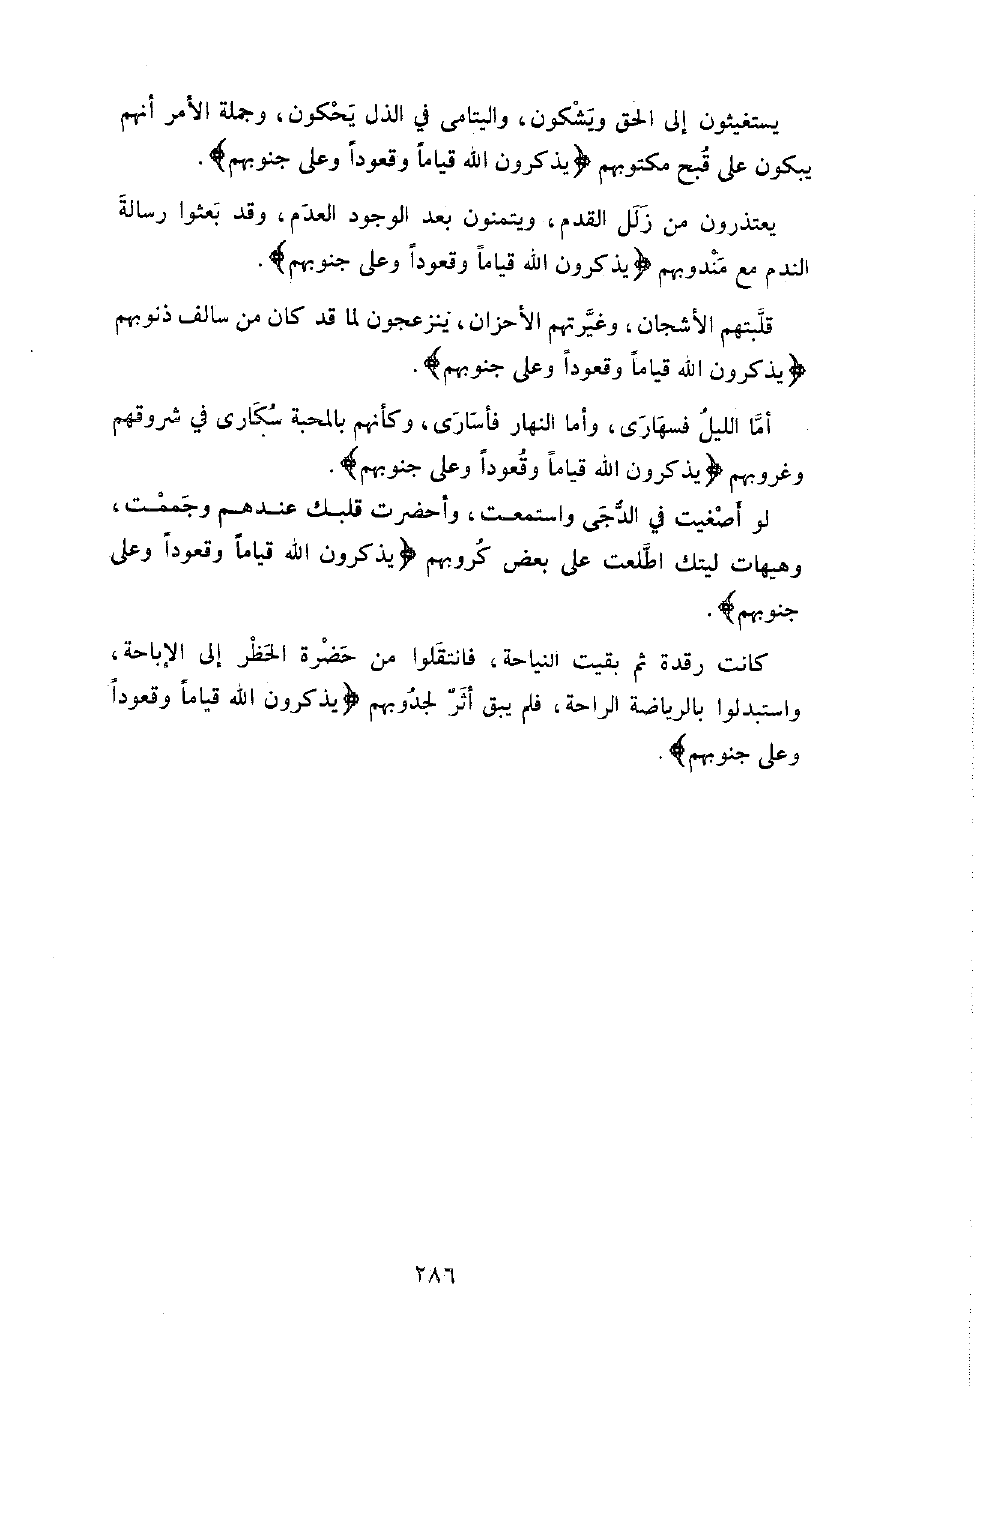 يستغيثون إلى الحق ويَشْكون، واليتامى في الذل يَحْكون، وجملة الأمر أنهم
يبكون على قُبح مكتوبهم ﴿يذكرون الله قياماً وقعوداً وعلى جنوبهم﴾.
يعتذرون من زَلَل القدم، ويتمنون بعد الوجود العدَم، وقد بَعثوا رسالةَ
الندم مع مَنْدوبهم ﴿يذكرون الله قياماً وقعوداً وعلى جنوبهم﴾.
قلَّبتهم الأشجان، وغيَّرتهم الأحزان، ينزعجون لما قد كان من سالف ذنوبهم
﴿يذكرون الله قياماً وقعوداً وعلى جنوبهم﴾.
أمَّا الليلُ فسهَارَى، وأما النهار فأسَارَى، وكأنهم بالمحبة سُكَارى في شروقهم
وغروبهم ﴿يذكرون الله قياماً وقُعوداً وعلى جنوبهم﴾.
لو أَصْغيت في الدُّجَى واستمعـت، وأحضرت قلبـك عنـدهـم وجَمعْـت،
وهيهات ليتك اطَّلعت على بعض كُروبهم ﴿يذكرون الله قياماً وقعوداً وعلى
جنوبهم﴾.
كانت رقدة ثم بقيت النياحة، فانتقَلوا من حَضْرة الحَظْر إلى الإباحة،
واستبدلوا بالرياضة الراحة، فلم يبق أثَرٌ لجدُوبهم ﴿يذكرون الله قياماً وقعوداً
وعلى جنوبهم﴾.
٢٨٦